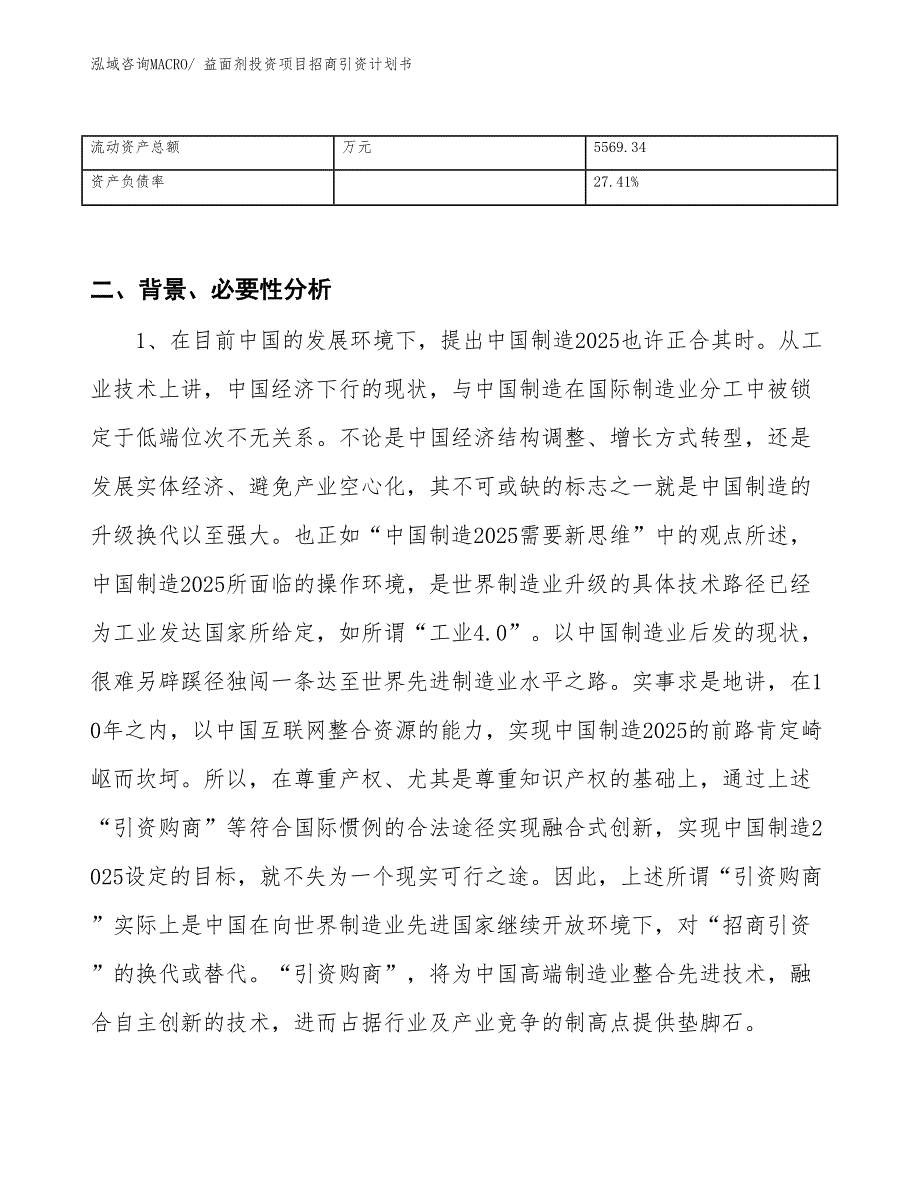 泓域咨询MACRO/ 益面剂投资项目招商引资计划书
流动资产总额 万元 5569.34
资产负债率 27.41%
二、背景、必要性分析
1、在目前中国的发展环境下，提出中国制造2025也许正合其时。从工
业技术上讲，中国经济下行的现状，与中国制造在国际制造业分工中被锁
定于低端位次不无关系。不论是中国经济结构调整、增长方式转型，还是
发展实体经济、避免产业空心化，其不可或缺的标志之一就是中国制造的
升级换代以至强大。也正如“中国制造2025需要新思维”中的观点所述，
中国制造2025所面临的操作环境，是世界制造业升级的具体技术路径已经
为工业发达国家所给定，如所谓“工业4.0”。以中国制造业后发的现状，
很难另辟蹊径独闯一条达至世界先进制造业水平之路。实事求是地讲，在1
0年之内，以中国互联网整合资源的能力，实现中国制造2025的前路肯定崎
岖而坎坷。所以，在尊重产权、尤其是尊重知识产权的基础上，通过上述
“引资购商”等符合国际惯例的合法途径实现融合式创新，实现中国制造2
025设定的目标，就不失为一个现实可行之途。因此，上述所谓“引资购商
”实际上是中国在向世界制造业先进国家继续开放环境下，对“招商引资
”的换代或替代。“引资购商”，将为中国高端制造业整合先进技术，融
合自主创新的技术，进而占据行业及产业竞争的制高点提供垫脚石。